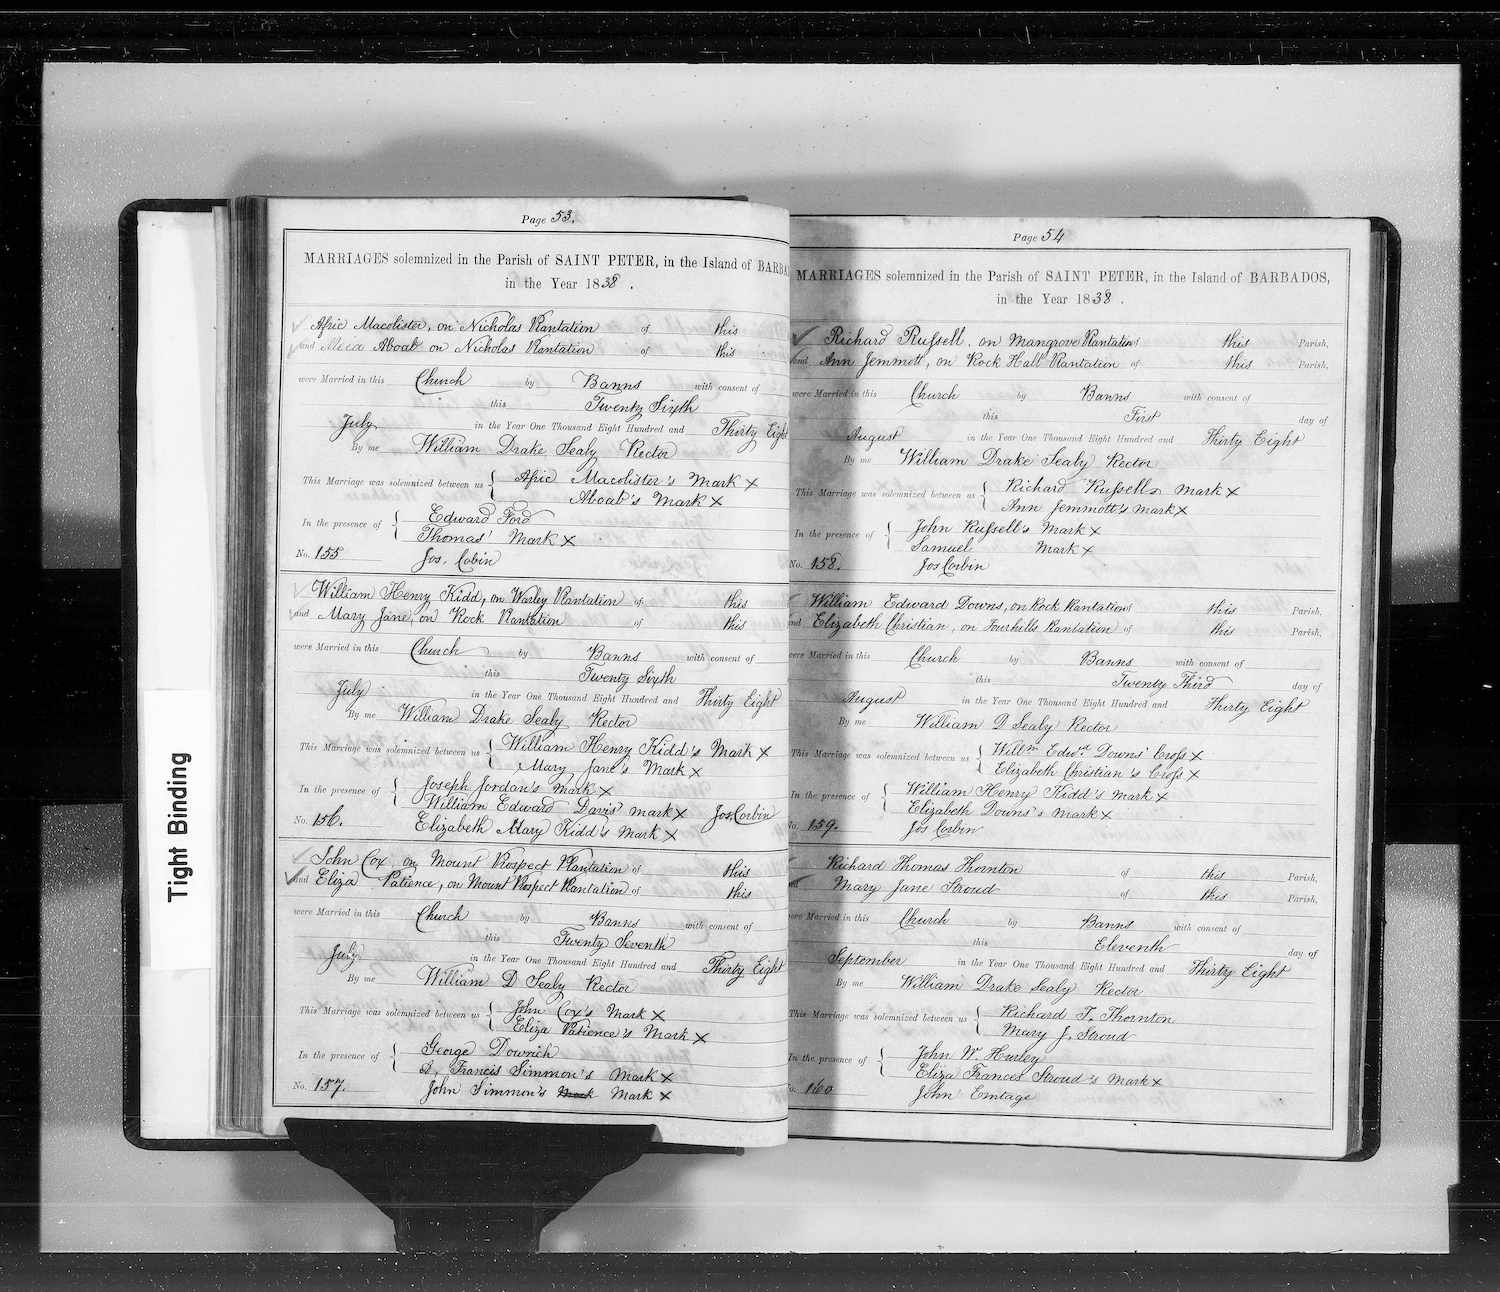 Tight Binding
Page 53.
MARRIAGES solemnized in the Parish of SAINT PETER, in the Island of BARBA
in the Year 1838 .
Afric Macolister, on Nicholas Plantation of this
and Aboab on Nicholas Plantation of this
were Married in this Church by Banns with consent of
this Twenty Sixth
July in the Year One Thousand Eight Hundred and Thirty Eight
By me William Drake Sealy Rector
This Marriage was solemnized between us { Afric Macolister's Mark X
Aboab's Mark X
In the presence of { Edward Ford
Thomas' Mark X
No. 155 Jos. Corbin
William Henry Kidd, on Warley Plantation of this
and Mary Jane, on Rock Plantation of this
were Married in this Church by Banns with consent of
this Twenty Sixth
July in the Year One Thousand Eight Hundred and Thirty Eight
By me William Drake Sealy Rector
This Marriage was solemnized between us { William Henry Kidd's Mark X
Mary Jane's Mark X
In the presence of { Joseph Jordan's Mark X
William Edward Davis' mark X Jos. Corbin
No. 156. Elizabeth Mary Kidd's Mark X
John Cox, on Mount Prospect Plantation of this
and Eliza Patience, on Mount Prospect Plantation of this
were Married in this Church by Banns with consent of
this Twenty Seventh
July in the Year One Thousand Eight Hundred and Thirty Eight
By me William D Sealy Rector
This Marriage was solemnized between us { John Cox's Mark X
Eliza Patience's Mark X
In the presence of { George Downich
Francis Simmon's Mark X
No. 157. John Simmon's Mark Mark X
Page 54
MARRIAGES solemnized in the Parish of SAINT PETER, in the Island of BARBADOS,
in the Year 1838 .
Richard Russell, on Mangrove Plantation of this Parish.
and Ann Jemmott, on Rock Hall Plantation of this Parish,
were Married in this Church by Banns with consent of
this First day of
August in the Year One Thousand Eight Hundred and Thirty Eight
By me William Drake Sealy Rector
This Marriage was solemnized between us { Richard Russell's Mark X
Ann Jemmott's mark X
In the presence of { John Russell's Mark X
Samuel Mark X
No. 158. Jos Corbin
William Edward Downs, on Rock Plantation of this Parish,
and Elizabeth Christian, on Fourhills Plantation of this Parish,
were Married in this Church by Banns with consent of
this Twenty Third day of
August in the Year One Thousand Eight Hundred and Thirty Eight
By me William D Sealy Rector
This Marriage was solemnized between us { Willm Edwd Downs' Cross X
Elizabeth Christian's Cross X
In the presence of { William Henry Kidd's mark X
Elizabeth Downs's mark X
No. 159. Jos Corbin
Richard Thomas Thornton of this Parish,
and Mary Jane Stroud of this Parish,
were Married in this Church by Banns with consent of
this Eleventh day of
September in the Year One Thousand Eight Hundred and Thirty Eight
By me William Drake Sealy Rector
This Marriage was solemnized between us { Richard T. Thornton
Mary J. Stroud
In the presence of { John W. Hurley
Eliza Frances Stroud's Mark X
No. 160 John Emtage